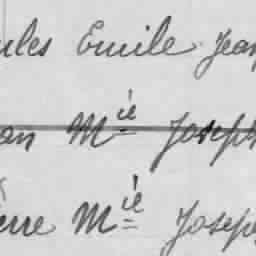 ules Emile Jean
an Mie Joseph
ierre Mie Joseph